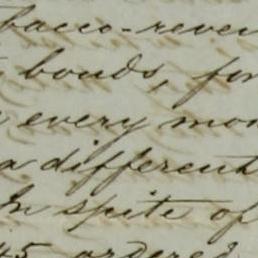 bacco-reven
bonds, for
every mon
a different
In spite of
45 ordered